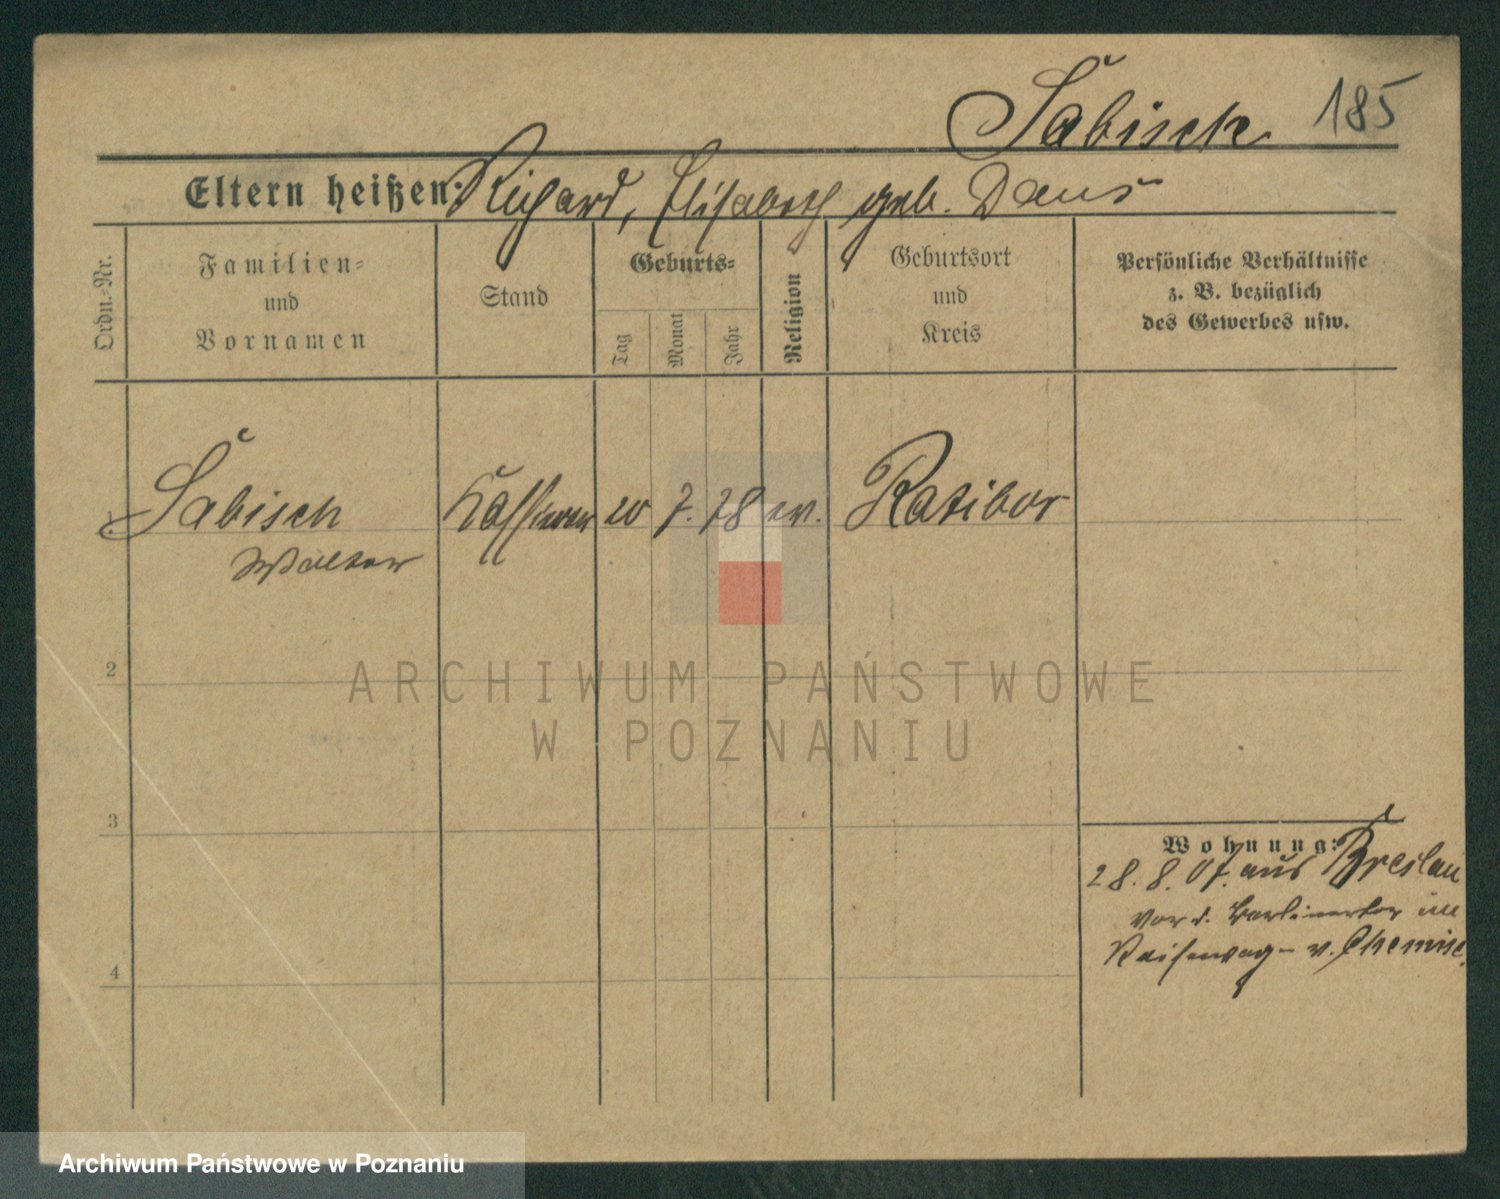 Sabisch 185
Eltern heißen: Richard, Elisabeth geb. Daus
Ordn.-Nr.
Familien-
und
Vornamen
Stand
Geburts-
Tag
Monat
Jahr
Religion
Geburtsort
und
Kreis
Persönliche Verhältnisse
z. B. bezüglich
des Gewerbes usw.
1 Sabisch 20 7. 78 ev. Ratibor
Walter
2
3
4
Wohnung:
28. 8. 07. aus Breslau
vor d. Berlinertor im
v.
ARCHIWUM PAŃSTWOWE
W POZNANIU
Archiwum Państwowe w Poznaniu